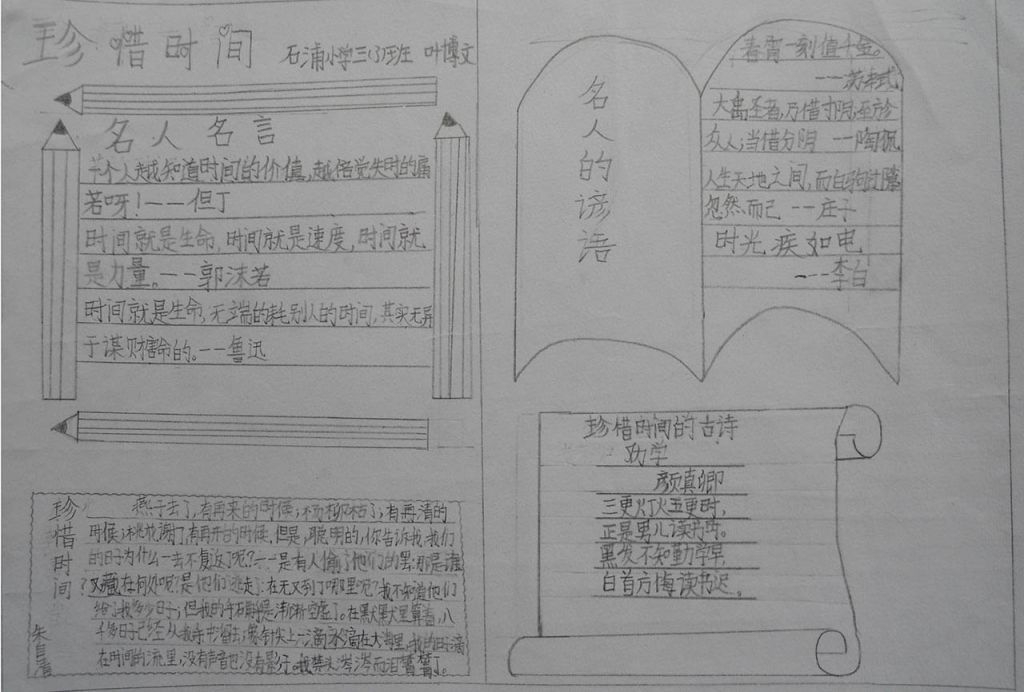 珍惜时间
石浦小学三(3)班 叶博文
名人名言
一个人越知道时间的价值,越倍觉失时的痛
苦呀!——但丁
时间就是生命,时间就是速度,时间就
是力量。——郭沫若
时间就是生命,无端的耗别人的时间,其实无异
于谋财害命的。——鲁迅
名人的谚语
春宵一刻值千金。
——苏轼
大禹圣者,乃惜寸阴,至于
众人,当惜分阴 ——陶侃
人生天地之间,而白驹过隙
忽然而已 ——庄子
时光疾如电
——李白
珍惜时间的古诗
劝学
颜真卿
三更灯火五更时,
正是男儿读书时。
黑发不知勤学早,
白首方悔读书迟。
珍惜时间
燕子去了,有再来的时候;杨柳枯了,有再清的
时候;桃花谢了,有再开的时候。但是,聪明的,你告诉我,我们
的日子为什么一去不复返了呢?——是有人偷了他们的罢:那是谁
?又藏在何处呢?是他们逃走了:在又到了哪里呢?我不知道他们
给了我多少日子;但我的手确是渐渐空虚了。在默默里算着,八
千多日子已经从我手中溜去;像针尖上一滴水滴在大海里,我的日子滴
在时间的流里,没有声音也没有影子。我禁头涔涔而泪
朱自清